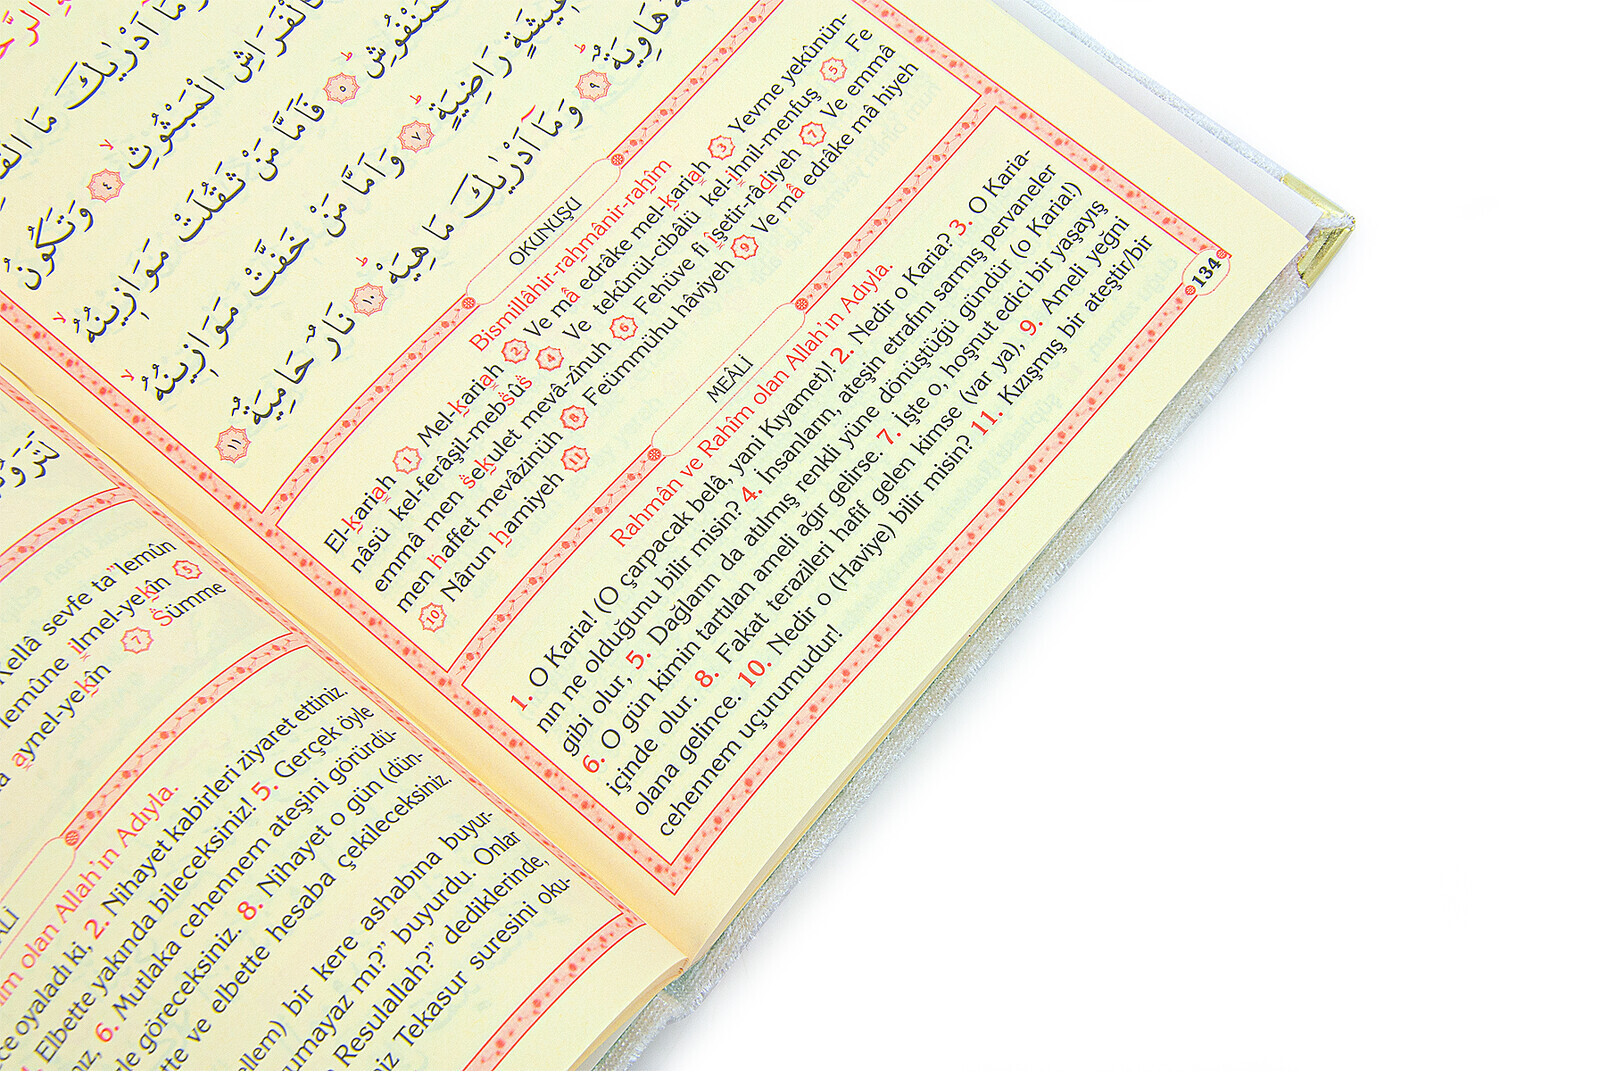 وَمَآ اَدْرٰيكَ مَا
كَالْفَرَاشِ الْمَبْثُوثِ ٤ وَتَكُونُ
الْمَنْفُوشِ ٥ فَاَمَّا مَنْ ثَقُلَتْ مَوَازِينُهُ
عِيشَةٍ رَاضِيَةٍ ٧ وَاَمَّا مَنْ خَفَّتْ مَوَازِينُهُ
هَاوِيَةٌ ٩ وَمَآ اَدْرٰيكَ مَا هِيَهْ ١٠ نَارٌ حَامِيَةٌ ١١
OKUNUŞU
Bismillâhir-rahmânir-rahîm
El-kariah 1 Mel-kariah 2 Ve mâ edrâke mel-kariah 3 Yevme yekûnün-
nâsü kel-ferâşil-mebsûs 4 Ve tekûnül-cibâlü kel-ihnil-menfuş 5 Fe
emmâ men sekulet mevâ-zînuh 6 Fehüve fî îşetir-râdiyeh 7 Ve emmâ
men haffet mevâzinüh 8 Feümmühu hâviyeh 9 Ve mâ edrâke mâ hiyeh
10 Nârun hamiyeh 11
MEÂLİ
Rahmân ve Rahîm olan Allah'ın Adıyla.
1. O Karia! (O çarpacak belâ, yani Kıyamet)! 2. Nedir o Karia? 3. O Karia-
nın ne olduğunu bilir misin? 4. İnsanların, ateşin etrafını sarmış pervaneler
gibi olur, 5. Dağların da atılmış renkli yüne dönüştüğü gündür (o Karia!)
6. O gün kimin tartılan ameli ağır gelirse. 7. İşte o, hoşnut edici bir yaşayış
içinde olur. 8. Fakat terazileri hafif gelen kimse (var ya), 9. Ameli yeğni
olana gelince. 10. Nedir o (Haviye) bilir misin? 11. Kızışmış bir ateştir/bir
cehennem uçurumudur!
134
Kellâ sevfe ta'lemûn
lemûne ilmel-yekîn 5
aynel-yekîn 7 Sümme
olan Allah'ın Adıyla.
oyaladı ki, 2. Nihayet kabirleri ziyaret ettiniz.
Elbette yakında bileceksiniz! 5. Gerçek öyle
6. Mutlaka cehennem ateşini görürdü-
göreceksiniz. 8. Nihayet o gün (dün-
ve elbette hesaba çekileceksiniz.
bir kere ashabına buyur-
mı?" buyurdu. Onlar
Resulallah?" dediklerinde,
Tekasur suresini oku-